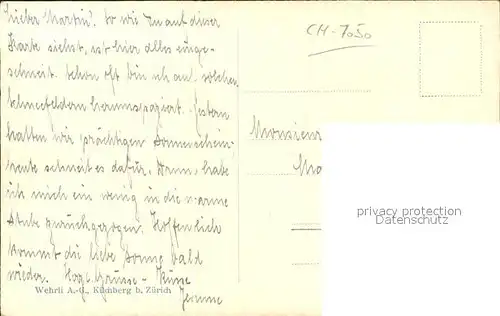 Lieber Martin! So wie Du auf dieser
Karte siehst, ist hier alles einge-
schneit. Schon oft bin ich auf solchen
Schneefeldern herumspaziert. Gestern
hatten wir prächtigen Sonnenschein
heute schneit es dafür. Drum habe
ich mich ein wenig in die warme
Stube zurückgezogen. Hoffentlich
kommt die liebe Sonne bald
wieder. Herzl. Grüsse - Küsse
Wehrli A.-G., Kilchberg b. Zürich
CH-7050
Monsieur
privacy protection
Datenschutz